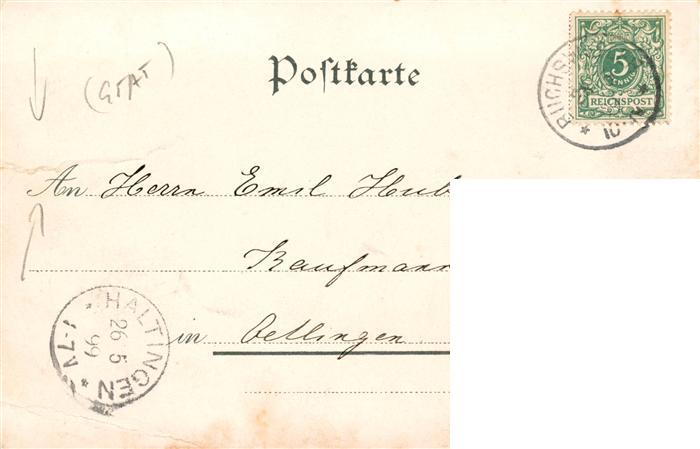 (GTAT)
Postkarte
5
PFENNIG
REICHSPOST
BUCHS
An Herrn Emil Hub
Kaufmann
in Oetlingen
* HALTINGEN *
26 5
99
1-7N